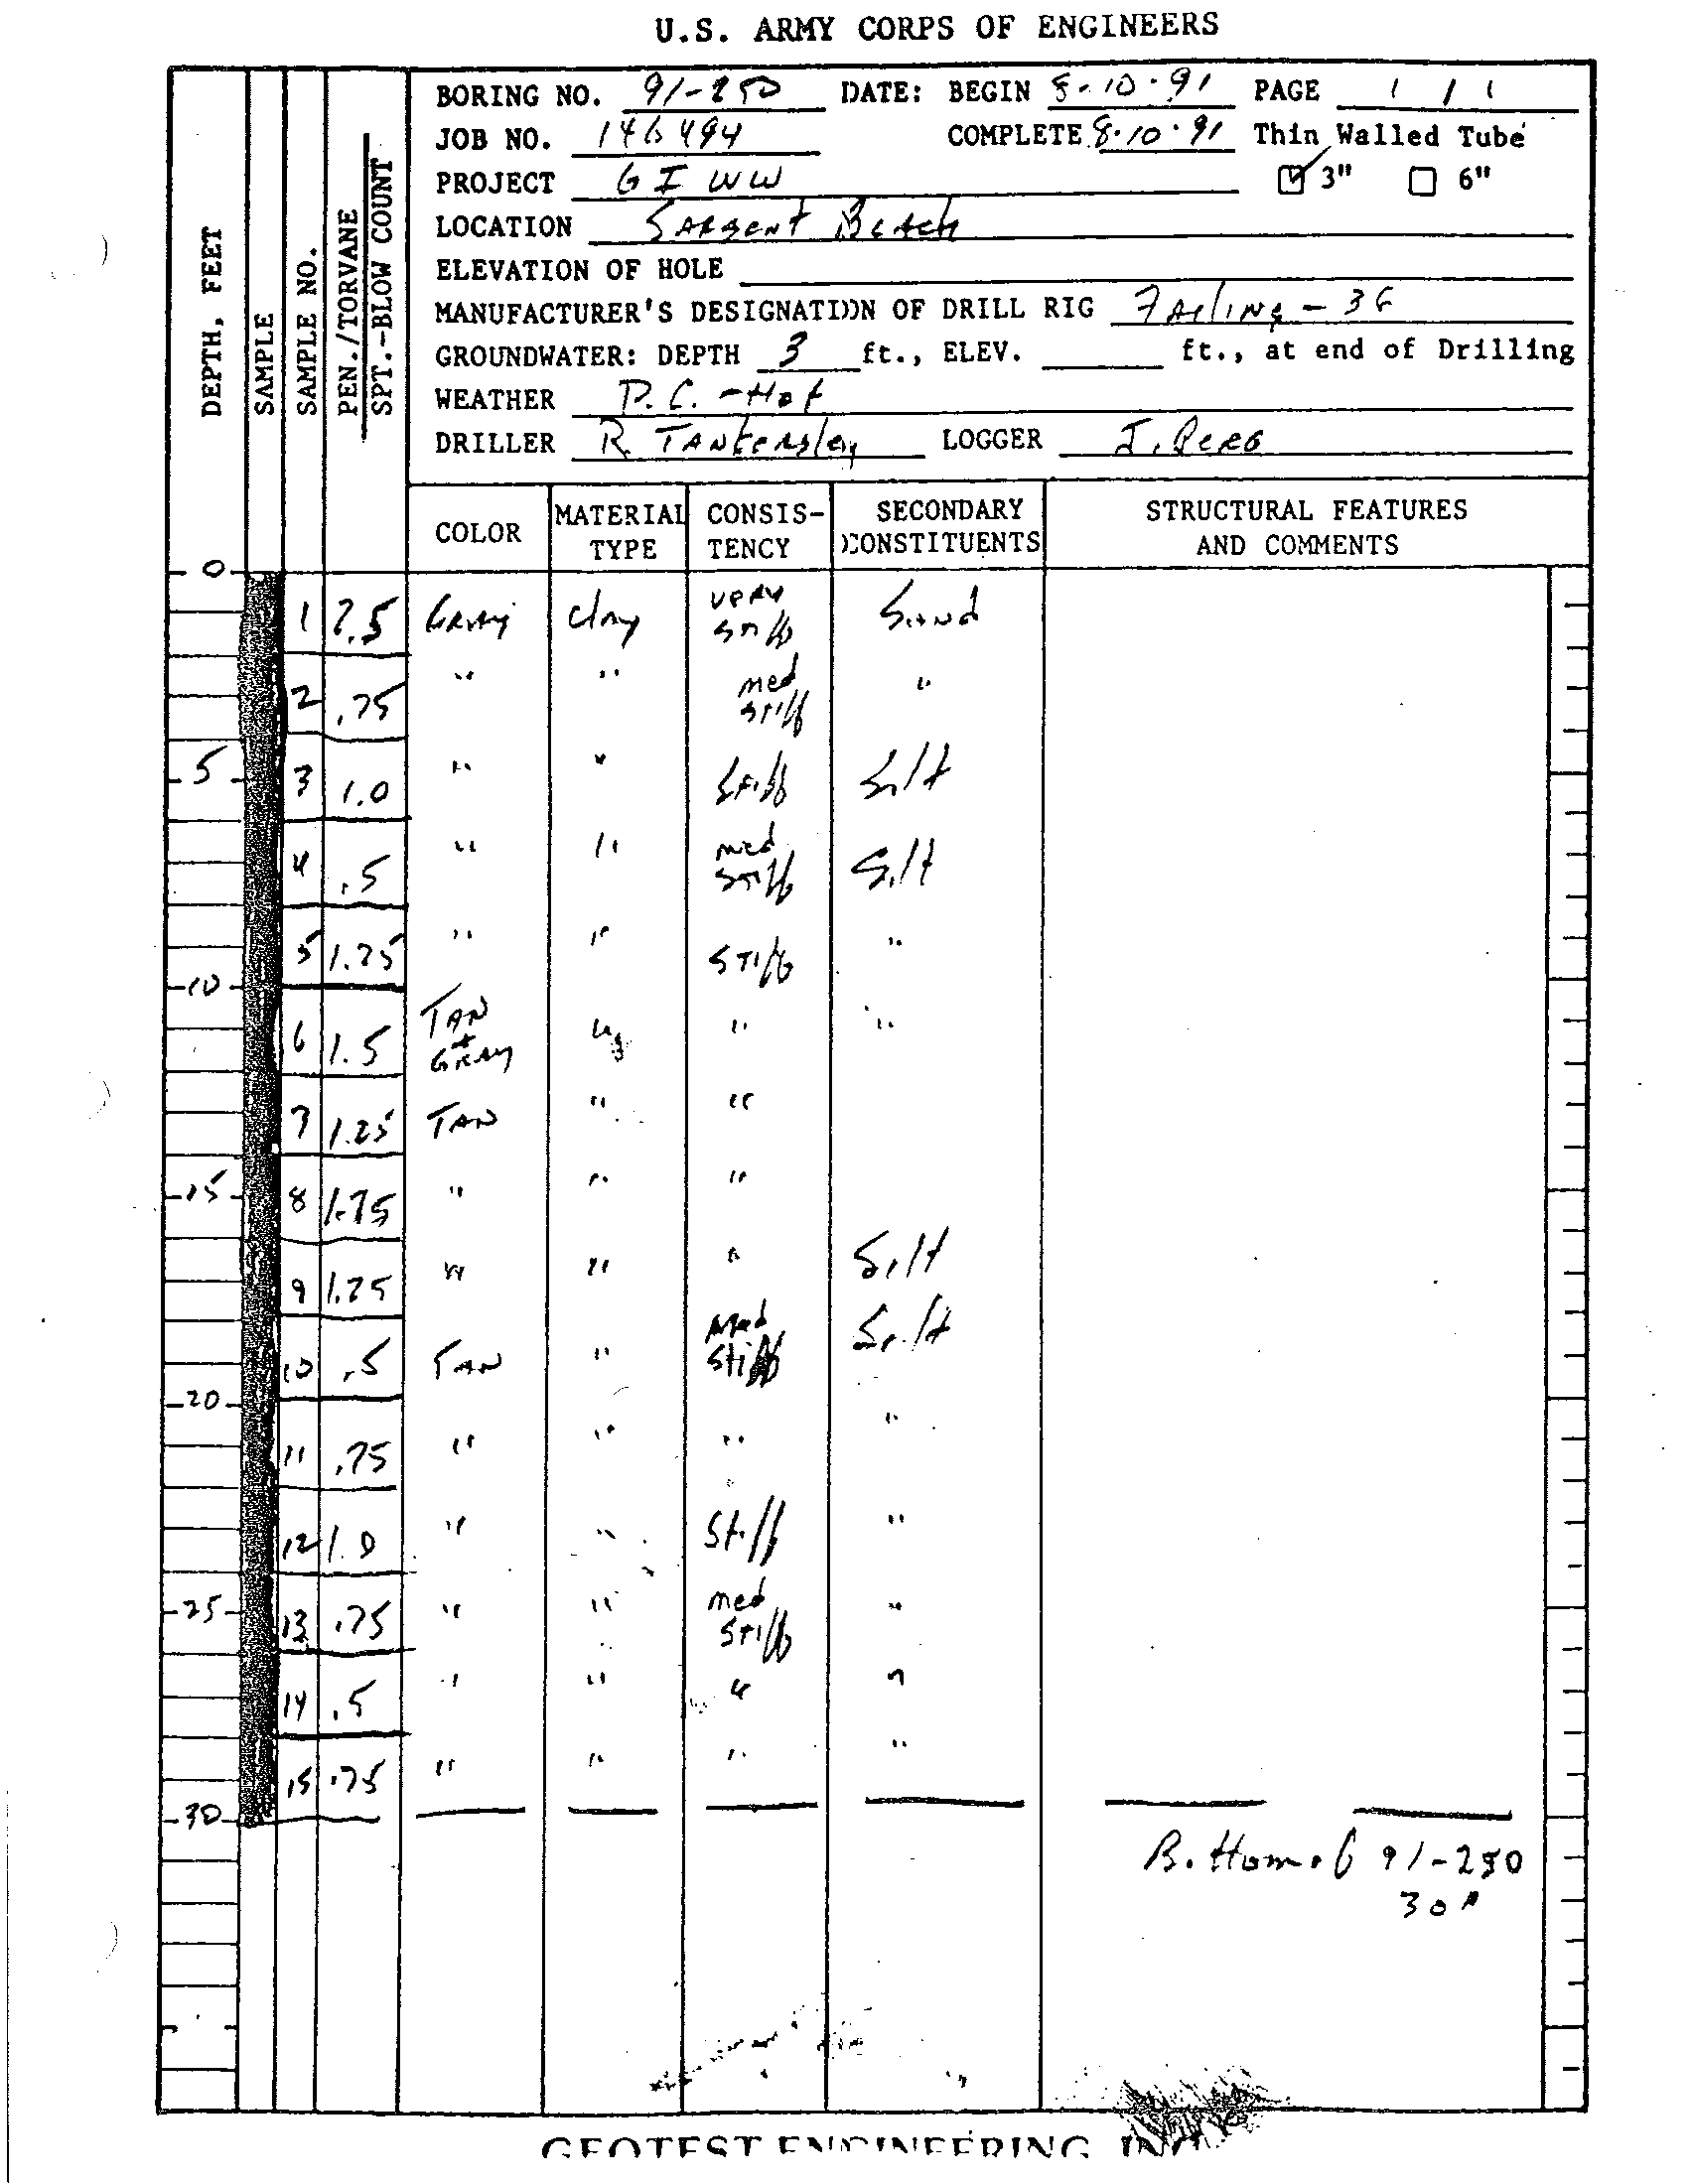 U.S. ARMY CORPS OF ENGINEERS
BORING NO. 91-250 DATE: BEGIN 8-10-91 PAGE 1 / 1
JOB NO. 146494 COMPLETE 8-10-91 Thin Walled Tube
PROJECT GIWW 3" 6"
LOCATION SARGENT BEACH
ELEVATION OF HOLE
MANUFACTURER'S DESIGNATION OF DRILL RIG FAILING-36
GROUNDWATER: DEPTH 3 ft., ELEV. ft., at end of Drilling
WEATHER P.C. - Hot
DRILLER R. TANKERSley LOGGER
DEPTH, FEET SAMPLE SAMPLE NO. PEN./TORVANE SPT.-BLOW COUNT
COLOR MATERIAL TYPE CONSIS-TENCY SECONDARY CONSTITUENTS STRUCTURAL FEATURES AND COMMENTS
0
1 2.5 GRAY clay VERY STIFF SAND
2 .75 " " med STIFF "
5 3 1.0 " " Stiff Silt
4 .5 " " med STIFF Silt
5 1.25 " " STIFF "
10
6 1.5 TAN + GRAY " " "
7 1.25 TAN " "
15 8 1.75 " " "
9 1.25 " " " Silt
10 .5 TAN " Med Stiff Silt
20
11 .75 " " " "
12 1.0 " " Stiff "
25 13 .75 " " med STIFF "
14 .5 " " " "
15 .75 " " " "
30
Bottom of 91-250
30'
GEOTEST ENGINEERING, INC.